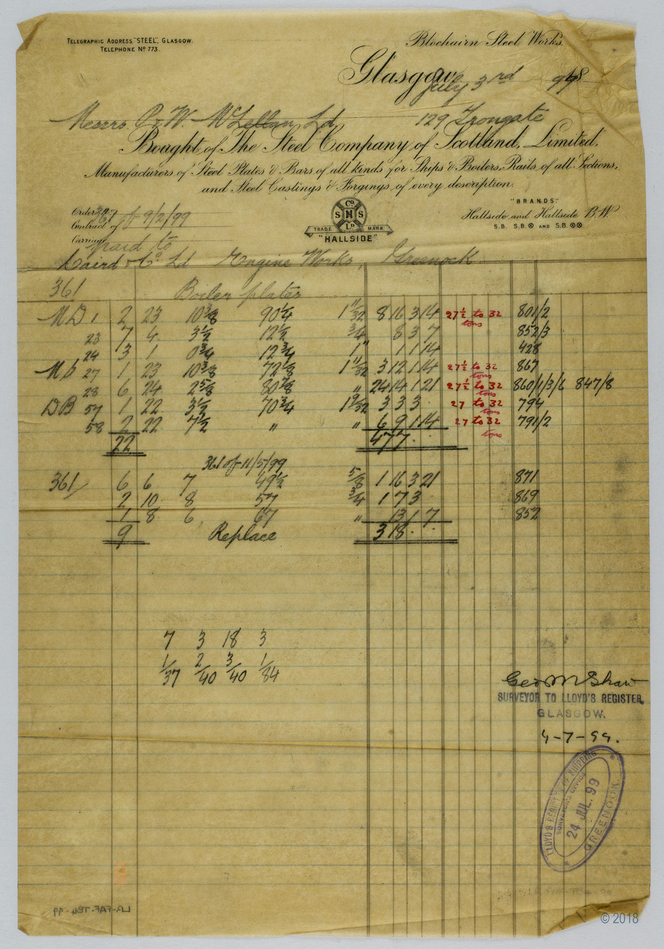 TELEGRAPHIC ADDRESS "STEEL", GLASGOW.
TELEPHONE No 773.
Blochairn Steel Works.
Glasgow July 3rd 
Messrs P & W McLellan Ld 129 Trongate
Bought of The Steel Company of Scotland, Limited,
Manufacturers of Steel Plates & Bars of all kinds for Ships & Boilers, Rails of all Sections,
and Steel Castings & Forgings, of every description.
Order of 9/2/99
Contract of
Carriage paid to
Co
SHS
Ld
TRADE MARK
"HALLSIDE"
"BRANDS"
Hallside and Hallside B.W
S.B. S.B.⊕ AND S.B.⊕⊕
Laird & Co Ld Engine Works, Greenock
361 Boiler plates
1 2 23 10⅜ 90¼ 1 11/32 8 16 3 14 27½ to 32 tons 801/2
23 7 4 3½ 12½ ¾ 8 3 7 852/3
24 3 1 0¾ 12¾ " 1 1 14 428
27 1 23 10⅜ 79⅛ 1 11/32 3 12 1 14 27½ to 32 tons 867
28 6 24 2⅝ 80⅜ " 24 14 1 21 27½ to 32 tons 860/1/3/6 847/8
DB 57 1 22 3½ 70¾ 3 3 3 27 to 32 tons 794
58 2 22 7½ " " 6 9 1 14 27 to 32 tons 791/2
22 47 7
361 of 11/5/99
361/ 6 6 7 49½ ⅝ 1 16 3 21 871
2 10 8 57 ¾ 1 7 3 869
1 8 6 67 " 13 1 7 852
9 Replace 3 18
7 3 18 3
1/37 2/40 3/40 1/84
Geo M Shaw
SURVEYOR TO LLOYD'S REGISTER,
GLASGOW.
4-7-99.
LLOYD'S REGISTER OF SHIPPING
24 JUL. 99
GREENOCK
LR-FAF-TB4-99
© 2018